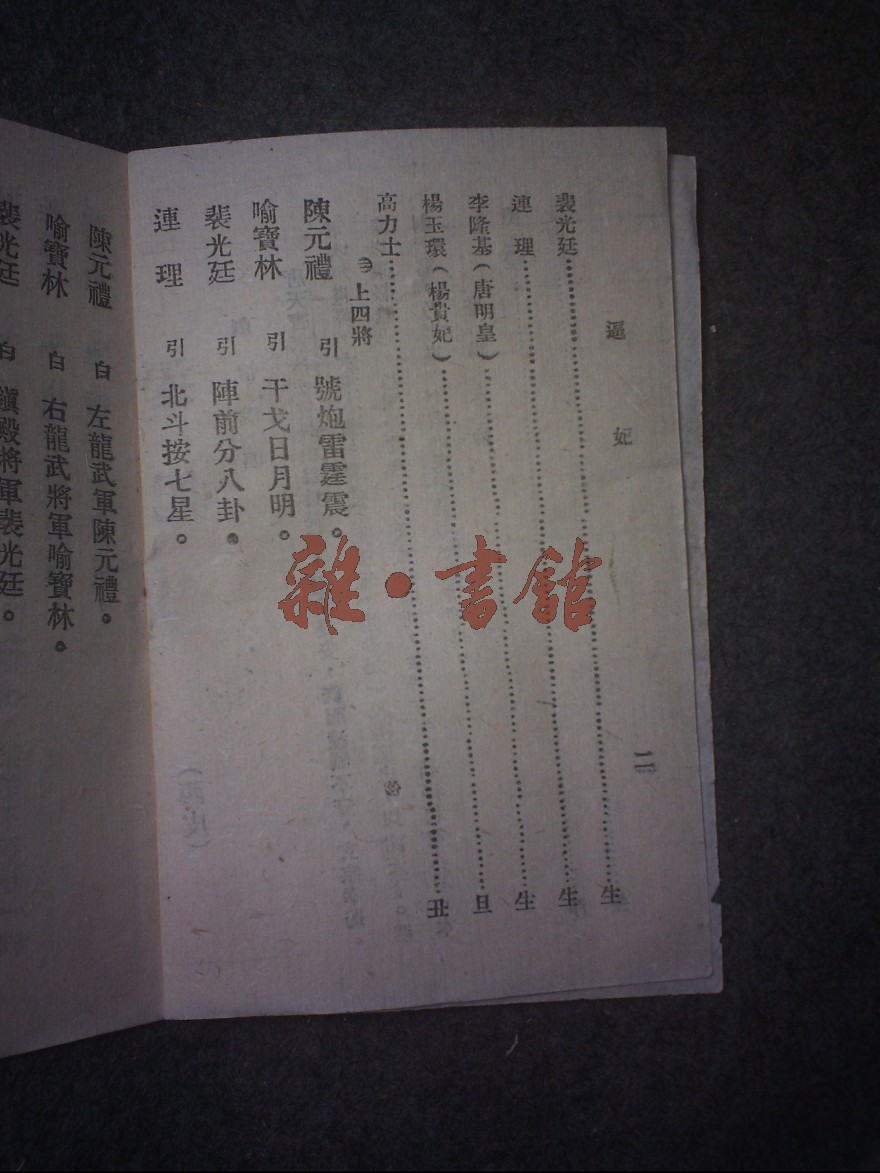 逼妃
二
裴光廷……生
連理……生
李隆基(唐明皇)……生
楊玉環(楊貴妃)……旦
高力士……丑
㊂上四將
陳元禮 引 號炮雷霆震。
喻寶林 引 干戈日月明。
裴光廷 引 陣前分八卦。
連理 引 北斗按七星。
陳元禮 白 左龍武軍陳元禮。
喻寶林 白 右龍武將軍喻寶林。
裴光廷 白 鎭殿將軍裴光廷。
雜·書館